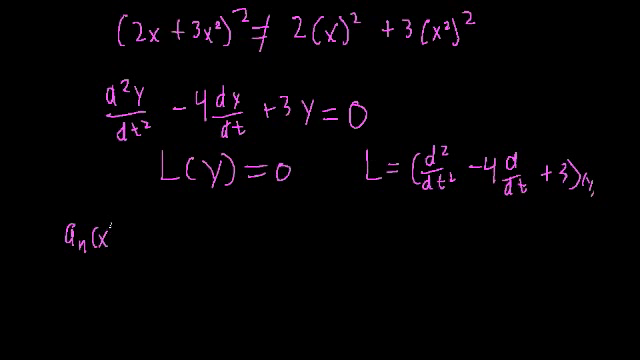 (2x + 3x²)² ≠ 2(x)² + 3(x²)²
d²y/dt² - 4 dy/dt + 3y = 0
L(y) = 0 L = (d²/dt² - 4 d/dt + 3)
aₙ(x